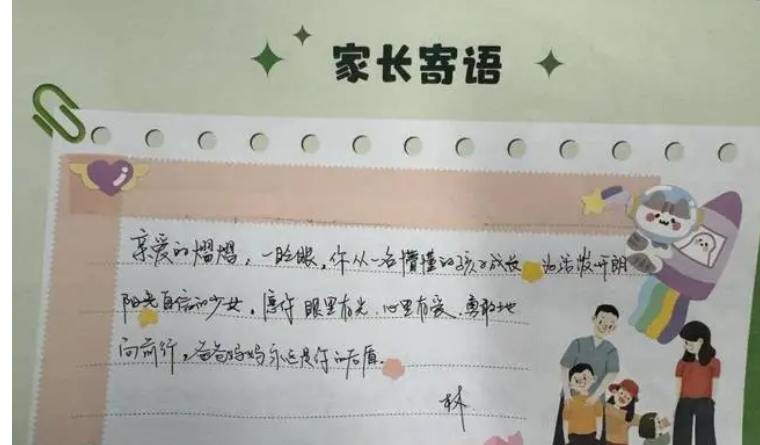 家长寄语
亲爱的熠熠，一眨眼，你从一名懵懂的孩子成长为活泼开朗
阳光自信的少女，愿你眼里有光，心里有爱，勇敢地
向前行，爸爸妈妈永远是你的后盾。
林